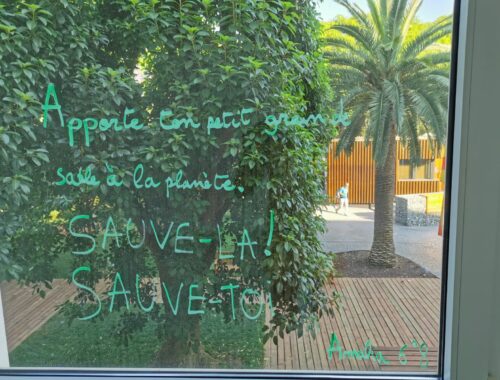 Apporte ton petit grain de
sable à la planète.
SAUVE-LA!
SAUVE-TOI
6°